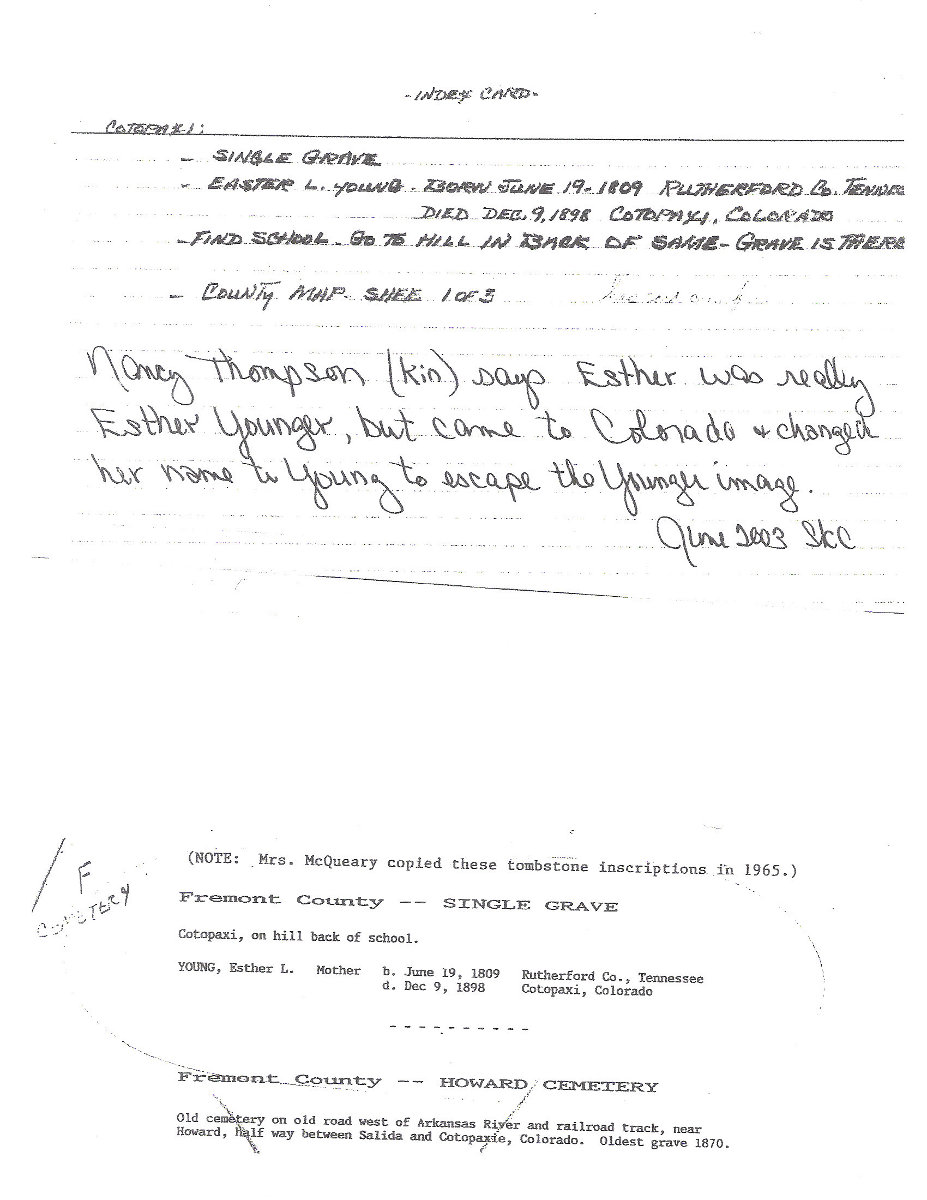 -INDEX CARD-
COTOPAXI:
- SINGLE GRAVE
- EASTER L. YOUNG. BORN JUNE 19-1809 RUTHERFORD Co. TENNE
DIED DEC. 9, 1898 COTOPAXI, COLORADO
-FIND SCHOOL - GO TO HILL IN BACK OF SAME - GRAVE IS THERE
- COUNTY MAP - SHEE 1 OF 3
Nancy Thompson (kin) says Esther was really
Esther Younger, but came to Colorado & changed
her name to Young to escape the Younger image.
June 2003 SKC
(NOTE: Mrs. McQueary copied these tombstone inscriptions in 1965.)
/ F
CEMETERY
Fremont County -- SINGLE GRAVE
Cotopaxi, on hill back of school.
YOUNG, Esther L. Mother b. June 19, 1809 Rutherford Co., Tennessee
d. Dec 9, 1898 Cotopaxi, Colorado
- - - - - - - - - -
Fremont County -- HOWARD CEMETERY
Old cemetery on old road west of Arkansas River and railroad track, near
Howard, half way between Salida and Cotopaxie, Colorado. Oldest grave 1870.